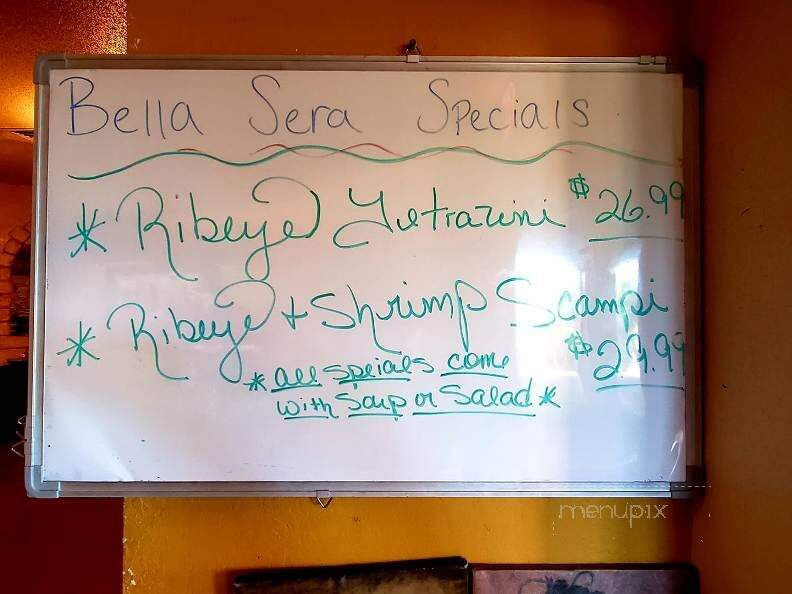 Bella Sera Specials
* Ribeye Tetrazini $26.99
* Ribeye + Shrimp Scampi
$29.99
* all speials come
with Soup or Salad *
menupix